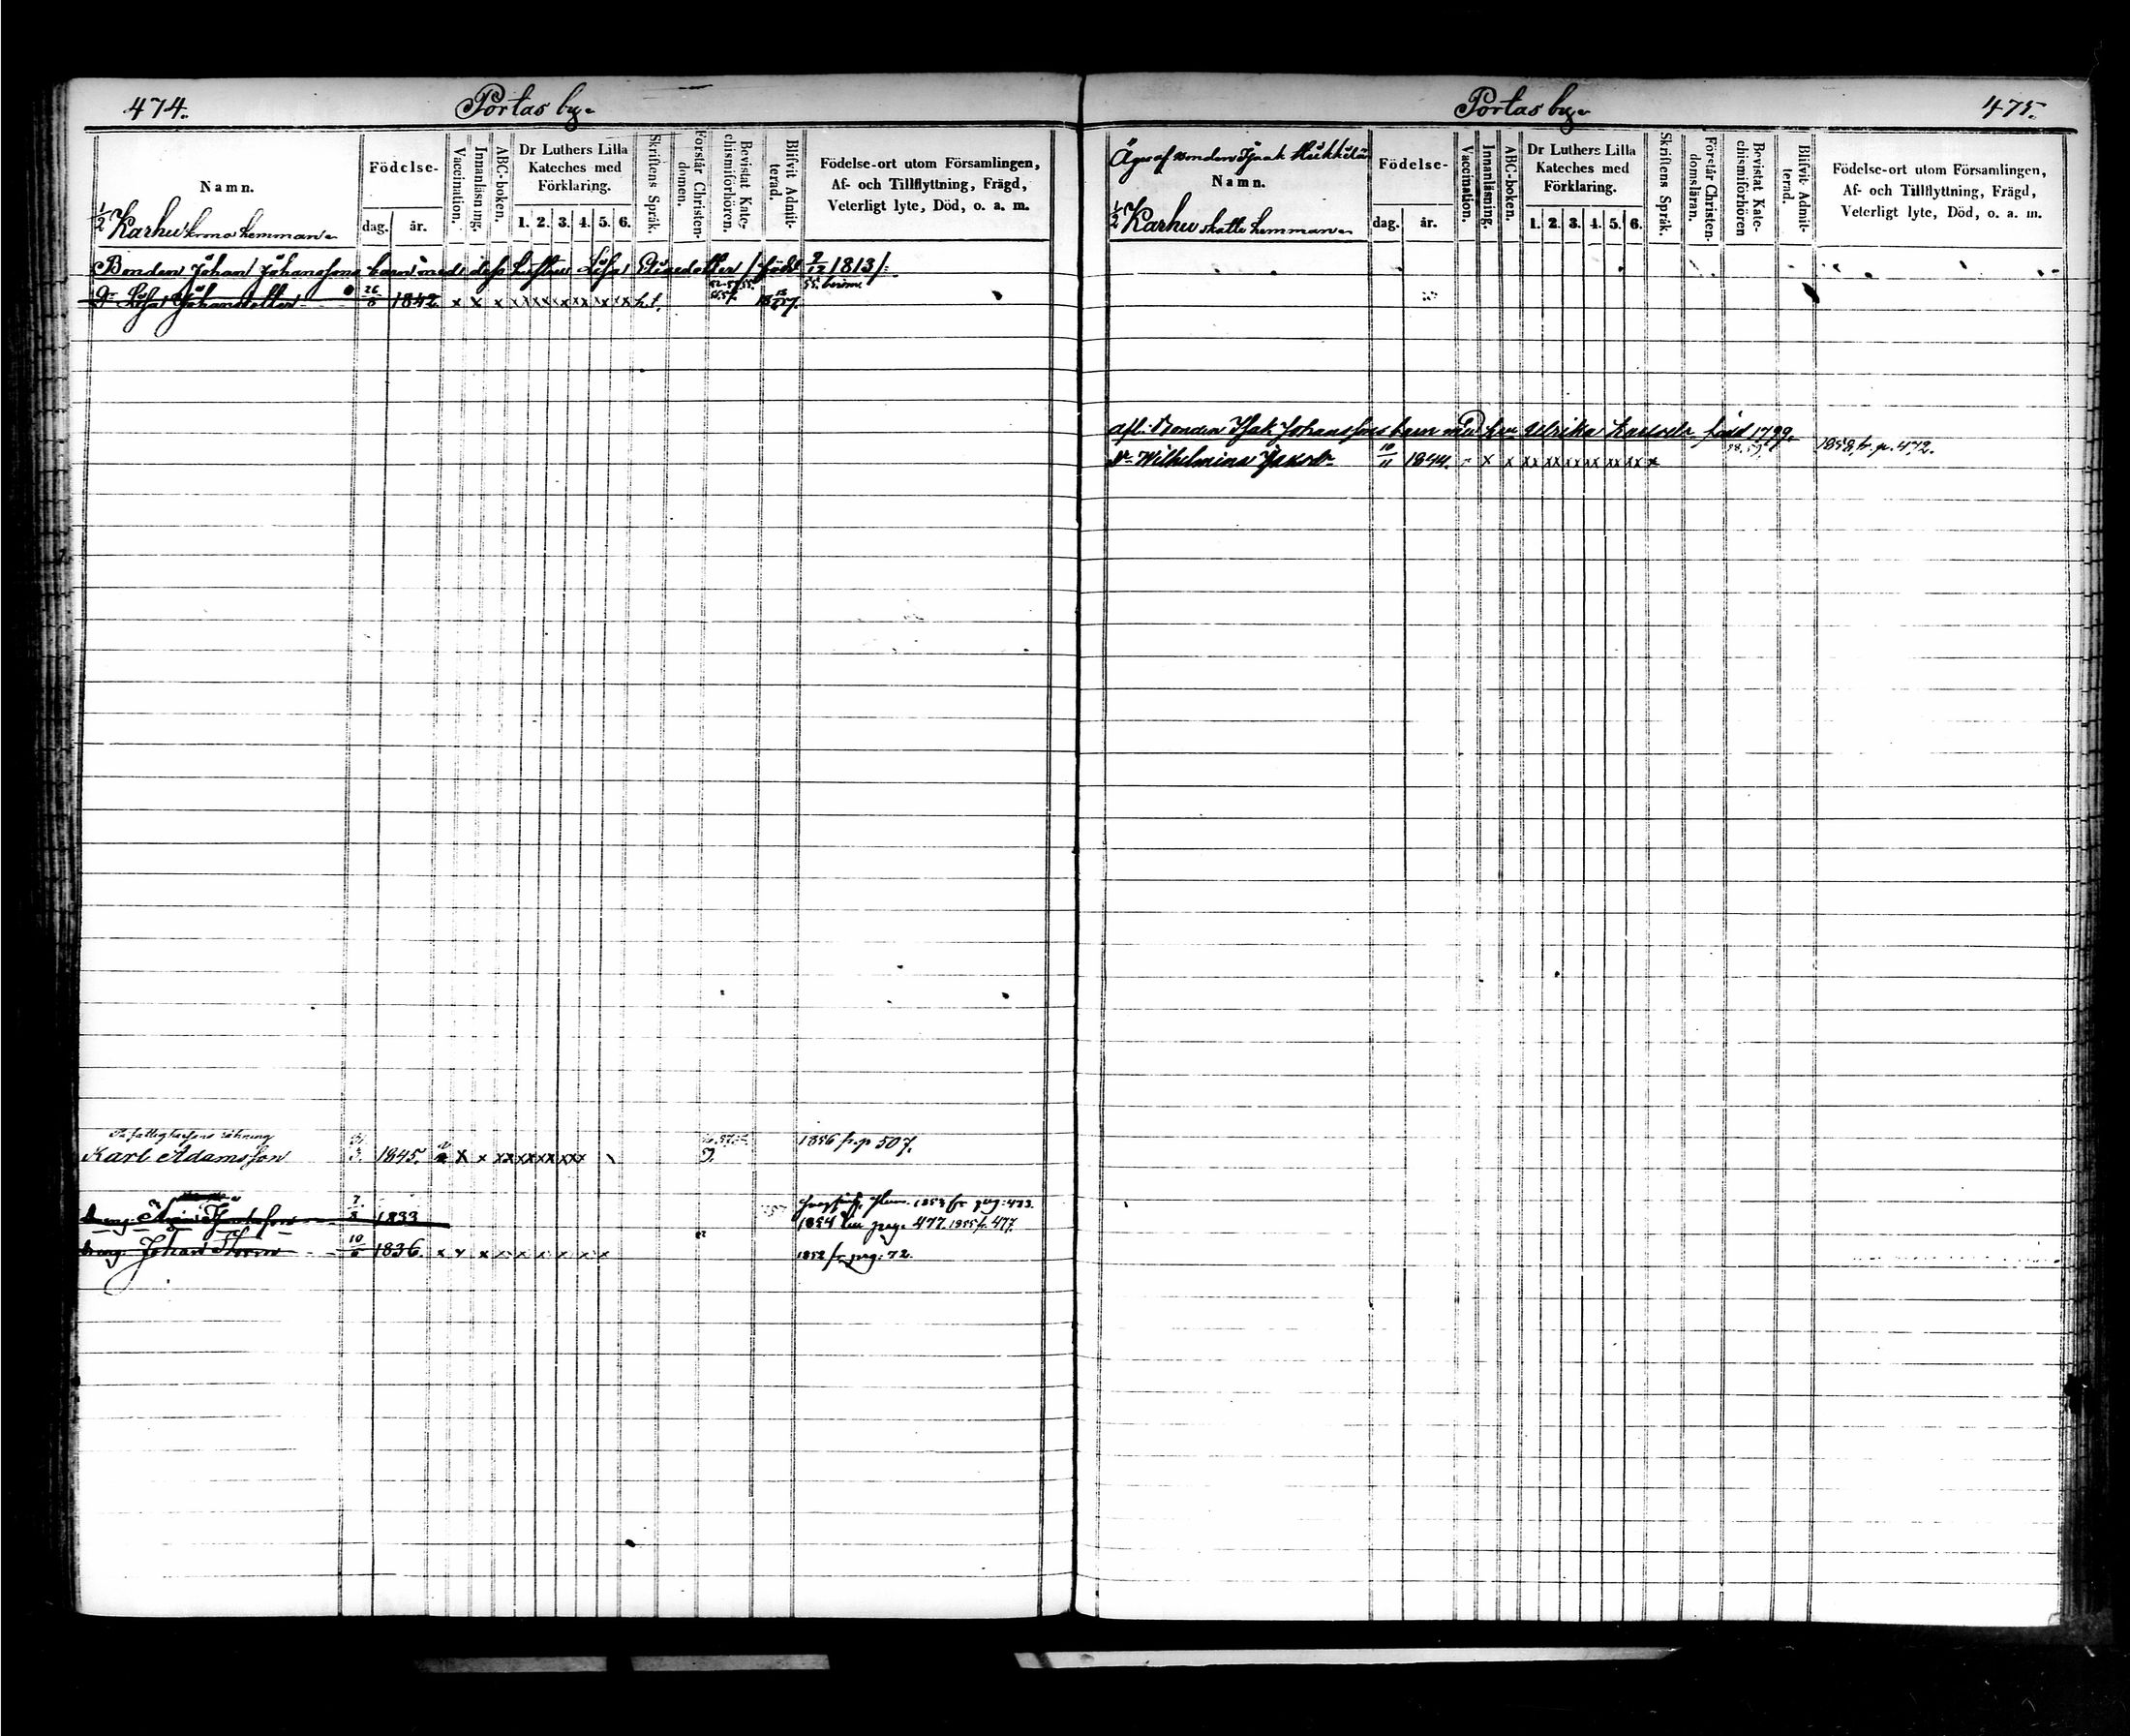 474. Portas by.
Namn.
Födelse-
dag. år.
Vaccination.
Innanläsning.
ABC-boken.
Dr Luthers Lilla Kateches med Förklaring.
1. 2. 3. 4. 5. 6.
Skriftens Språk.
Förstår Christen-domen.
Bevistat Kate-chismiförhören.
Blifvit Admit-terad.
Födelse-ort utom Församlingen,
Af- och Tillflyttning, Frägd,
Veterligt lyte, Död, o. a. m.
1/2 Karhu krono hemman
Bonden Johan Johanssons barn med dess hustru Lisa /: född 9/12 1813 /:
Dr Lisa Johansdotter 26/6 1842. x x x x x x x x x x x
Karl Adamsson 3. 1845. x x x x x x x x x
1856 fr. p 507.
dreng 7/8 1833
1853 fr pag: 473.
1854 pag. 477. 1955 fr. 477.
dreng Johan 10/6 1836. x x x x x x x x x
1852 fr pag: 72.
Portas by 475.
Äges af Bonden Isaak
Namn.
Födelse-
dag. år.
Vaccination.
Innanläsning.
ABC-boken.
Dr Luthers Lilla Kateches med Förklaring.
1. 2. 3. 4. 5. 6.
Skriftens Språk.
Förstår Christen-domsläran.
Bevistat Kate-chismiförhören
Blifvit Admit-terad.
Födelse-ort utom Församlingen,
Af- och Tillflyttning, Frägd,
Veterligt lyte, Död, o. a. m.
1/2 Karhu skatte hemman
Afl. Bonden Isak Johanssons barn med Ulrika född 1799.
Dr Wilhelmina Isaksdr 10/11 1844. x x x x x x x x x
1858 fr. p. 472.